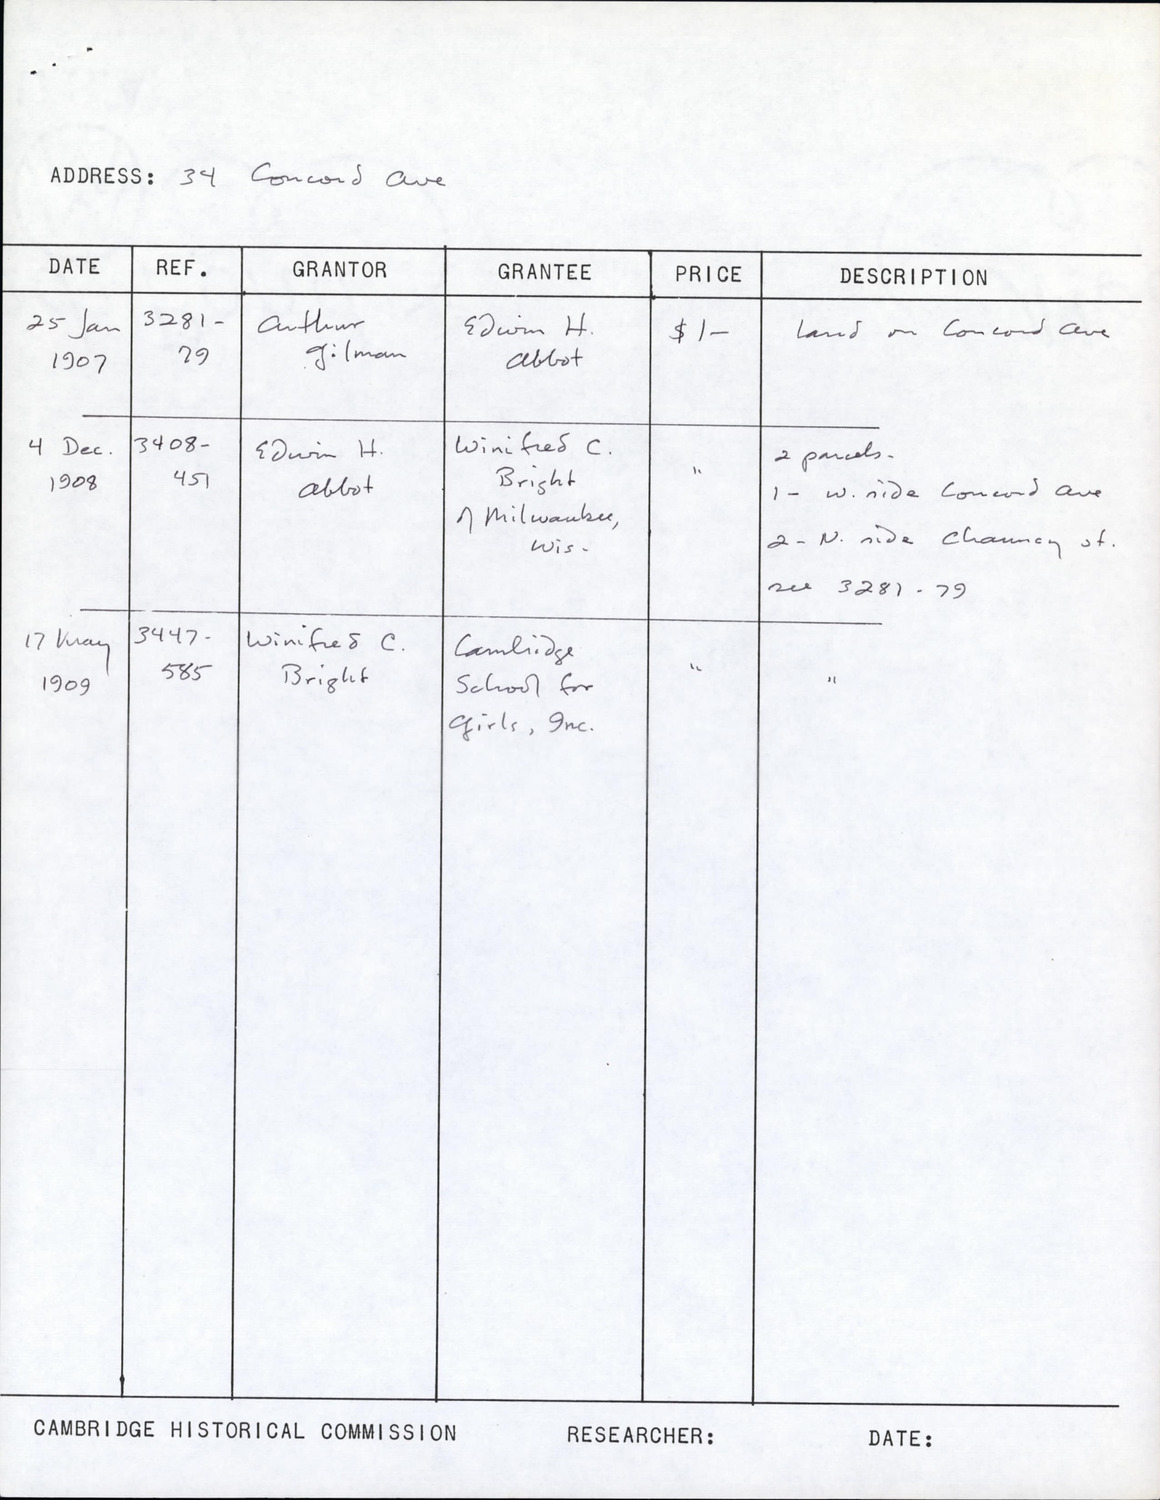 ADDRESS: 34 Concord Ave
DATE REF. GRANTOR GRANTEE PRICE DESCRIPTION
25 Jan 3281- Arthur Edwin H. $1- Land on Concord Ave
1907 79 Gilman Abbot
4 Dec. 3408- Edwin H. Winifred C. " 2 parcels.
1908 451 Abbot Bright 1- W. side Concord Ave
of Milwaukee, 2- N. side Chauncy st.
Wis. see 3281-79
17 May 3447- Winifred C. Cambridge " "
1909 585 Bright School for
Girls, Inc.
CAMBRIDGE HISTORICAL COMMISSION RESEARCHER: DATE: